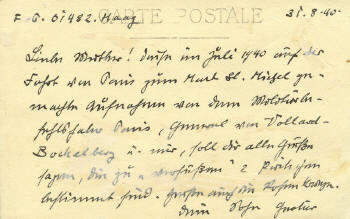 F. G. 01482. Haag
CARTE POSTALE
31-8-40-
Liebe Mutter! Diese im Juli 1940 auf der
Fahrt von Paris zum Mont St. Michel ge-
machte Aufnahme von dem Militärbe-
fehlshaber Paris, General von Vollard-
Bockelberg u. mir, soll dir alle Grüße
sagen, die zu 2
bestimmt sind. Grüße auch die
Dein Sohn